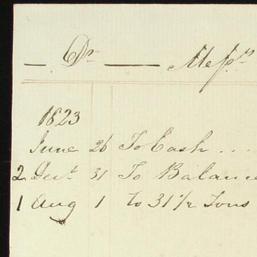 Dr Messrs
1823
June 26 To Cash ...
2 Decr. 31 To Balance
1 Aug 1 to 31 1/2 Tons